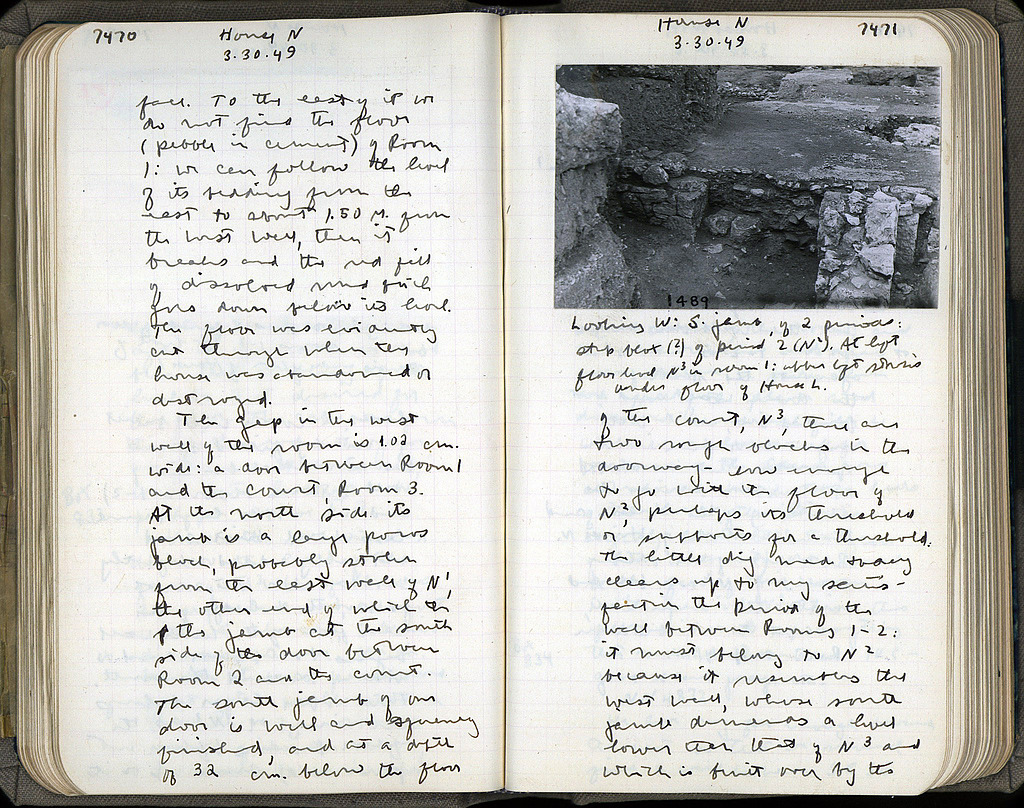 7470
House N
3.30.49
face. To the east of it we
do not find the floor
(pebble in cement) of Room
1: we can follow the level
of its bedding from the
east to about 1.50 M. from
the west wall, then it
breaks and the red fill
of dissolved mud brick
goes down below its level.
The floor was evidently
cut through when the
house was abandoned or
destroyed.
The gap in the west
wall of the room is 1.02 cm.
wide: a door between Room 1
and the Court, Room 3.
At the north side its
jamb is a large poros
block, probably stolen
from the east wall of N1,
the other end of which is
the jamb at the south
side of the door between
Room 2 and the court.
The south jamb of our
door is well and squarely
finished, and at a depth
of 32 cm. below the floor
House N
3.30.49
7471
1489
Looking W: S. jamb, of 2 periods:
step block (?) of period 2 (N2). At left
floor level N3 in room 1: upper left
under floor of House L.
of the court, N3 there are
two rough blocks in the
doorway - low enough
to go with the floor of
N2, perhaps its threshold
or supports for a threshold.
The little dig made today
clears up to my satis-
faction the period of the
wall between Rooms 1-2:
it must belong to N2
because it resembles the
west wall, whose south
jamb demands a level
lower than that of N3 and
which is built over by the